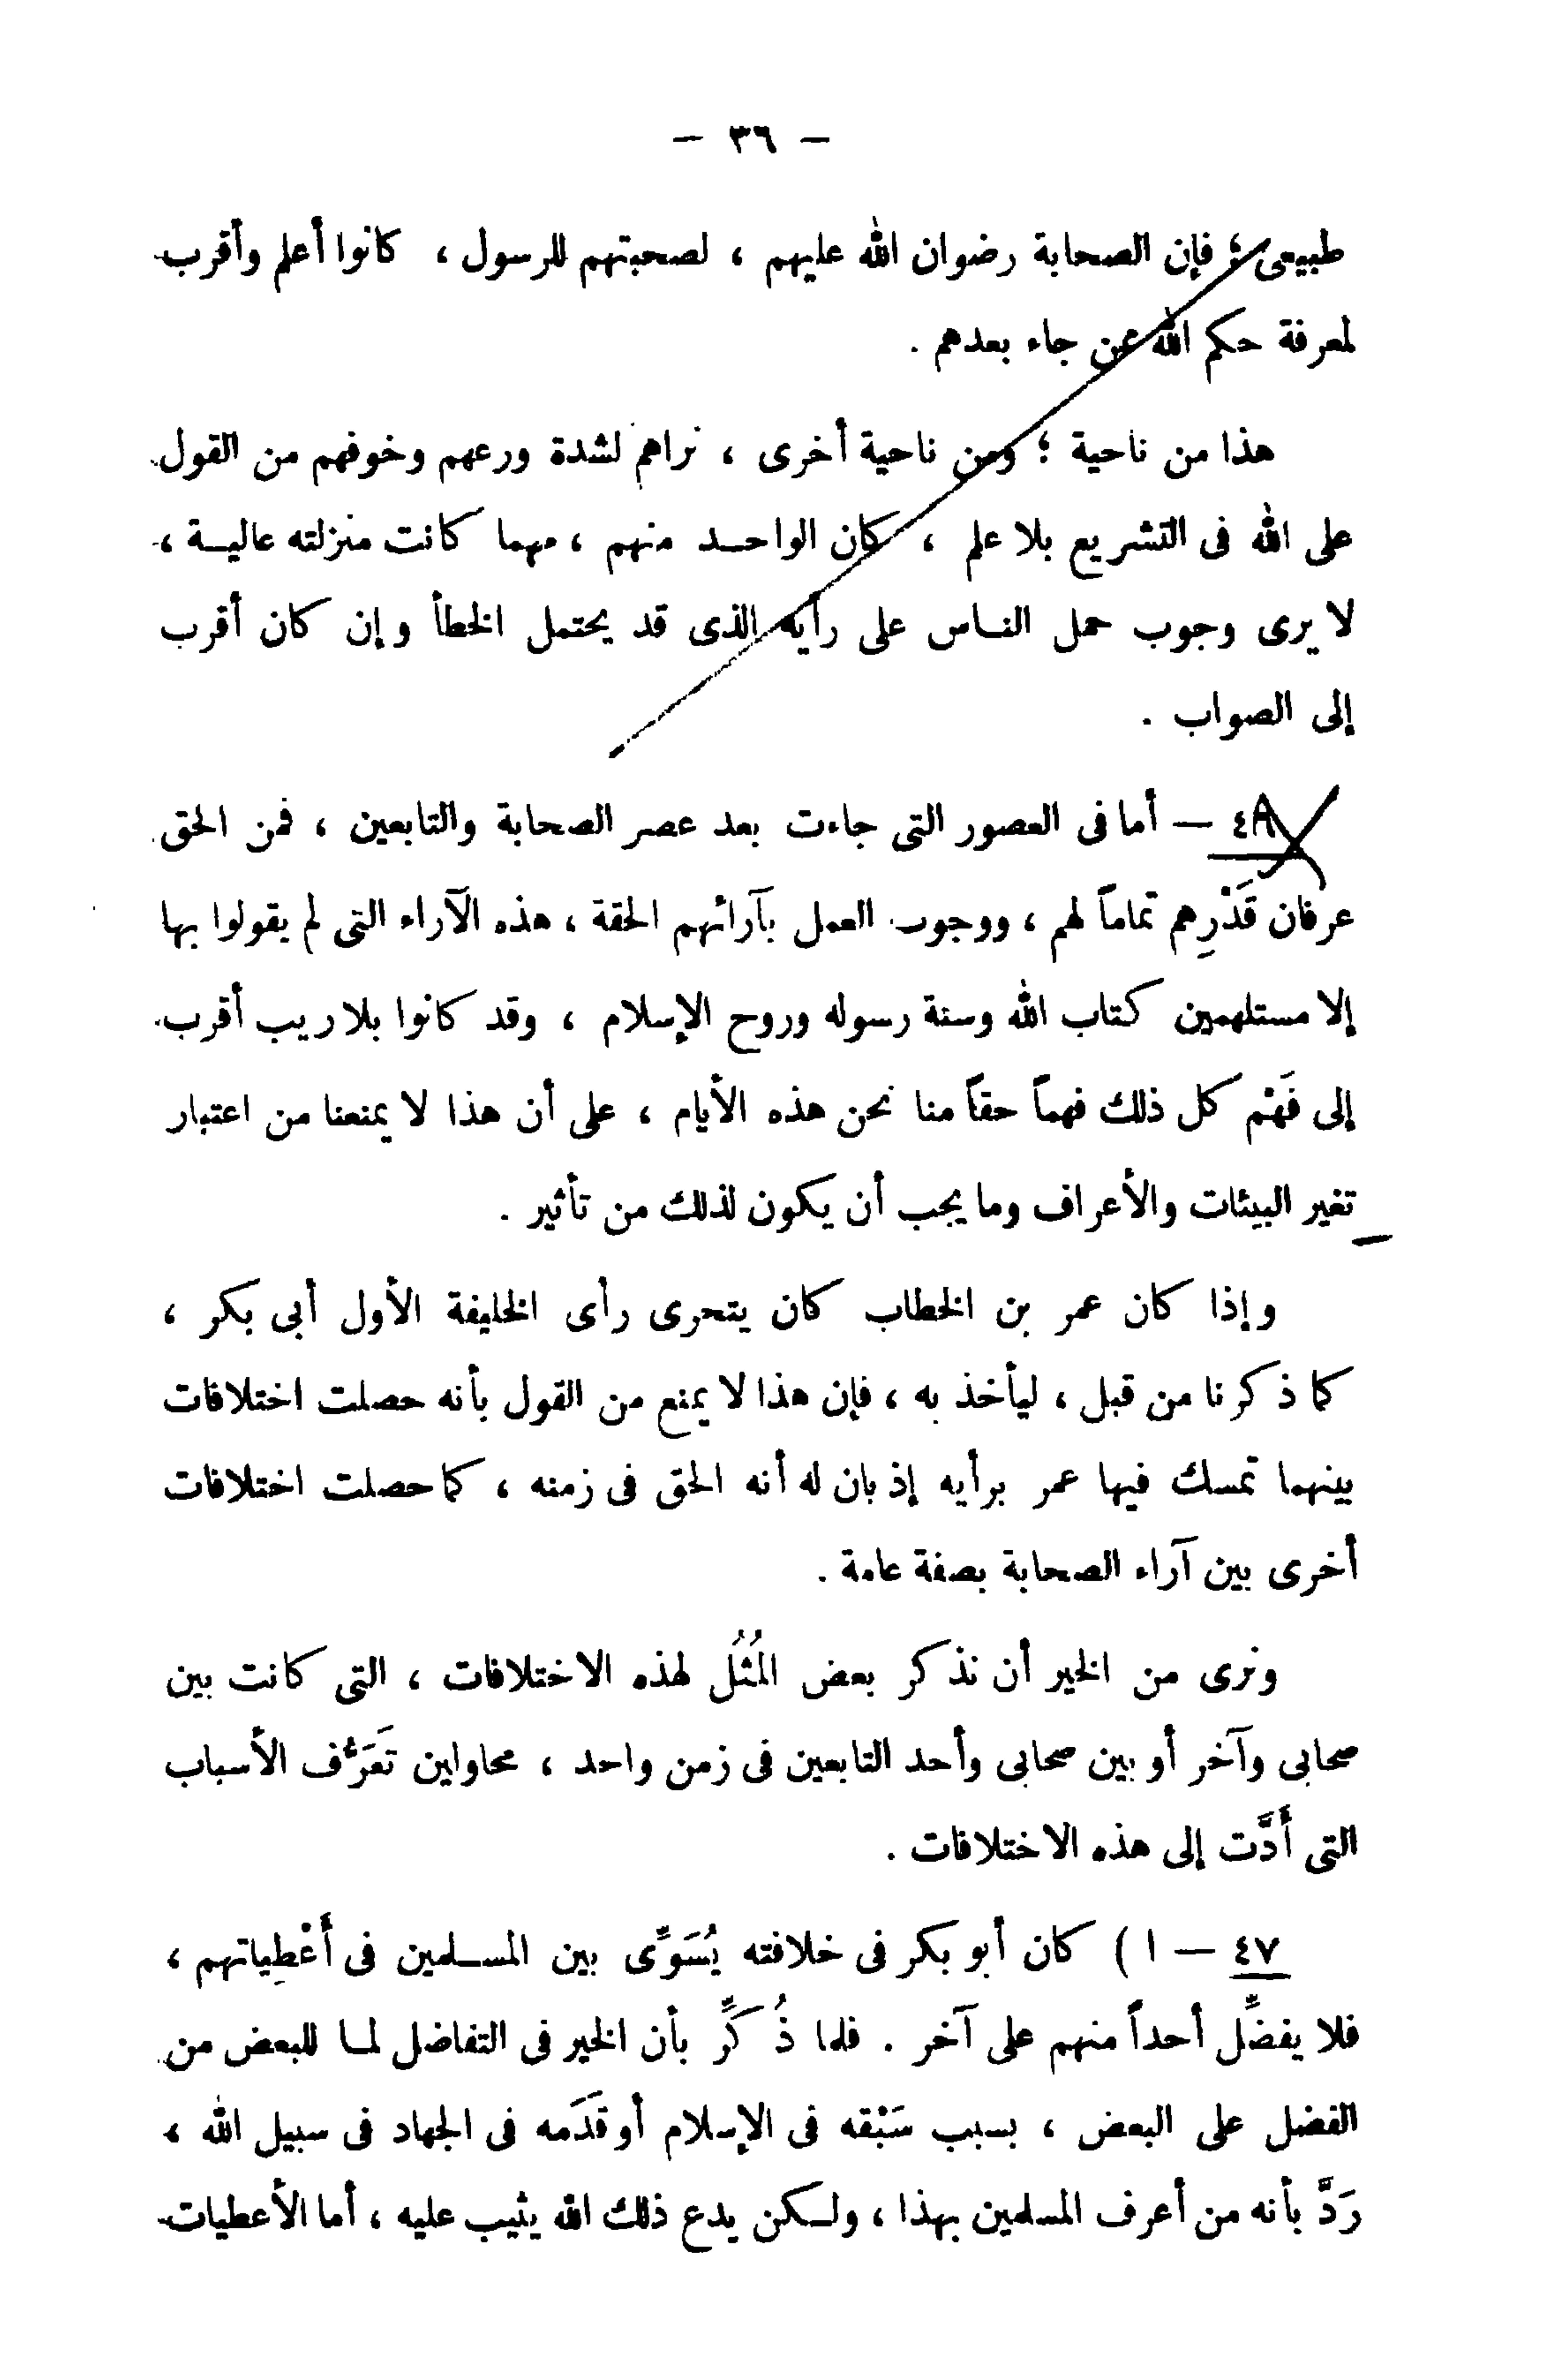 — ٣٦ —
طبيعى ؛ فإن الصحابة رضوان الله عليهم ، لصحبتهم للرسول ، كانوا أعلم وأقرب
لمعرفة حكم الله عن جاء بعدهم .
هذا من ناحية ؛ ومن ناحية أخرى ، نراهم لشدة ورعهم وخوفهم من القول
على الله فى التشريع بلا علم ، كان الواحد منهم ، مهما كانت منزلته عالية ،
لا يرى وجوب حمل الناس على رأيه الذى قد يحتمل الخطأ وإن كان أقرب
إلى الصواب .
— أما فى العصور التى جاءت بعد عصر الصحابة والتابعين ، فمن الحق
عرفان قَدْرِهم تماماً لهم ، ووجوب العمل بآرائهم الحقة ، هذه الآراء التى لم يقولوا بها
إلا مستلهمين كتاب الله وسنة رسوله وروح الإسلام ، وقد كانوا بلا ريب أقرب
إلى فَهْم كل ذلك فهماً حقاً منا نحن هذه الأيام ، على أن هذا لا يمنعنا من اعتبار
تغير البيئات والأعراف وما يجب أن يكون لذلك من تأثير .
وإذا كان عمر بن الخطاب كان يتحرى رأى الخليفة الأول أبى بكر ،
كما ذكرنا من قبل ، ليأخذ به ، فإن هذا لا يمنع من القول بأنه حصلت اختلافات
بينهما تمسك فيها عمر برأيه إذ بان له أنه الحق فى زمنه ، كما حصلت اختلافات
أخرى بين آراء الصحابة بصفة عامة .
ونرى من الخير أن نذكر بعض المُثُل لهذه الاختلافات ، التى كانت بين
صحابى وآخر أو بين صحابى وأحد التابعين فى زمن واحد ، محاولين تَعَرُّف الأسباب
التى أَدَّت إلى هذه الاختلافات .
٤٧ — ا ) كان أبو بكر فى خلافته يُسَوِّى بين المسلمين فى أَعْطِياتهم ،
فلا يفضِّل أحداً منهم على آخر . فلما ذُكِّر بأن الخير فى التفاضل لما للبعض من
الفضل على البعض ، بسبب سَبْقه فى الإسلام أو قَدَمه فى الجهاد فى سبيل الله ،
رَدَّ بأنه من أعرف المسلمين بهذا ، ولكن يدع ذلك الله يثيب عليه ، أما الأعطيات